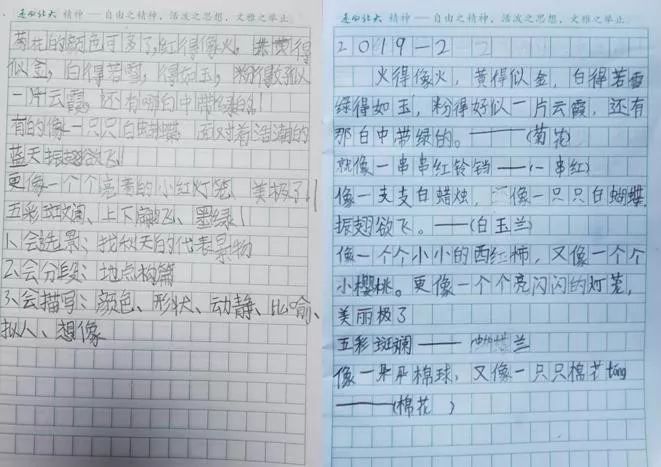 走向北大 精神——自由之精神，活泼之思想，文雅之举止
菊花的颜色可多了,红得像火，黄得
似金，白得若雪，得如玉，粉得好似
一片云霞，还有那白中带绿的！
有的像一只只白蝴蝶 面对着浩瀚的
蓝天振翅欲飞！
更像一个个亮着的小红灯笼 美极了！
五彩斑斓、上下翻飞、墨绿！
1、会选景：找秋天的代表景物
2、会分段：地点构篇
3、会描写：颜色、形状、动静、比喻、
拟人、想像
走向北大 精神——自由之精神，活泼之思想，文雅之举止
2019-2 2
火得像火，黄得似金，白得若雪
绿得如玉，粉得好似一片云霞，还有
那白中带绿的。——(菊花)
就像一串串红铃铛——(一串红)
像一支支白蜡烛，像一只只白蝴蝶，
振翅欲飞。——(白玉兰)
像一个个小小的西红柿，又像一个个
小樱桃。更像一个个亮闪闪的灯笼，
美丽极了
五彩斑斓——蝴蝶兰
像一朵朵棉球，又像一只只棉花táng
——(棉花)